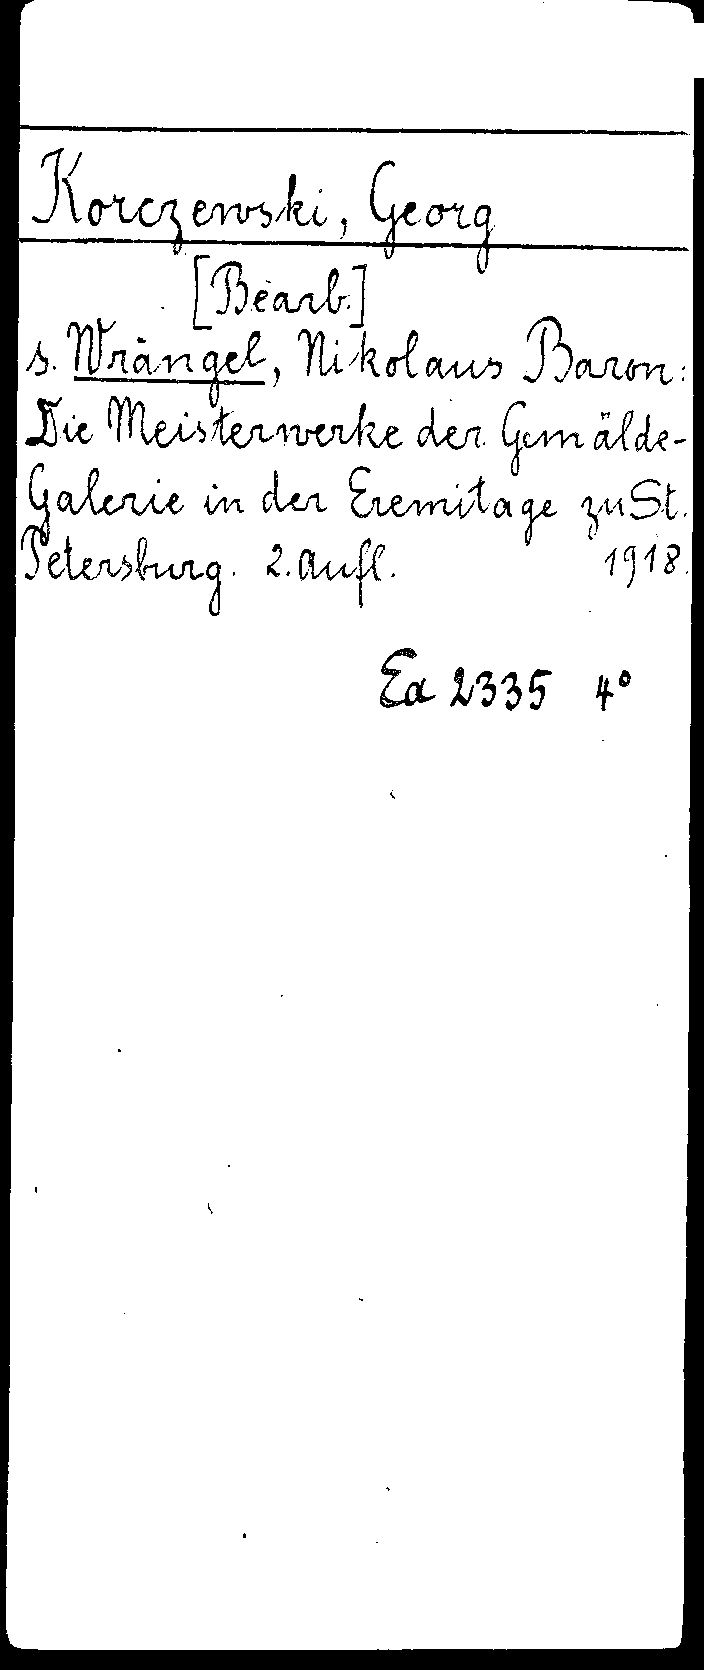 Korczewski, Georg
[Bearb.]
s. Wrangel, Nikolaus Baron:
Die Meisterwerke der Gemälde-
Galerie in der Eremitage zu St.
Petersburg. 2. Aufl. 1918.
Ea 2335 4°